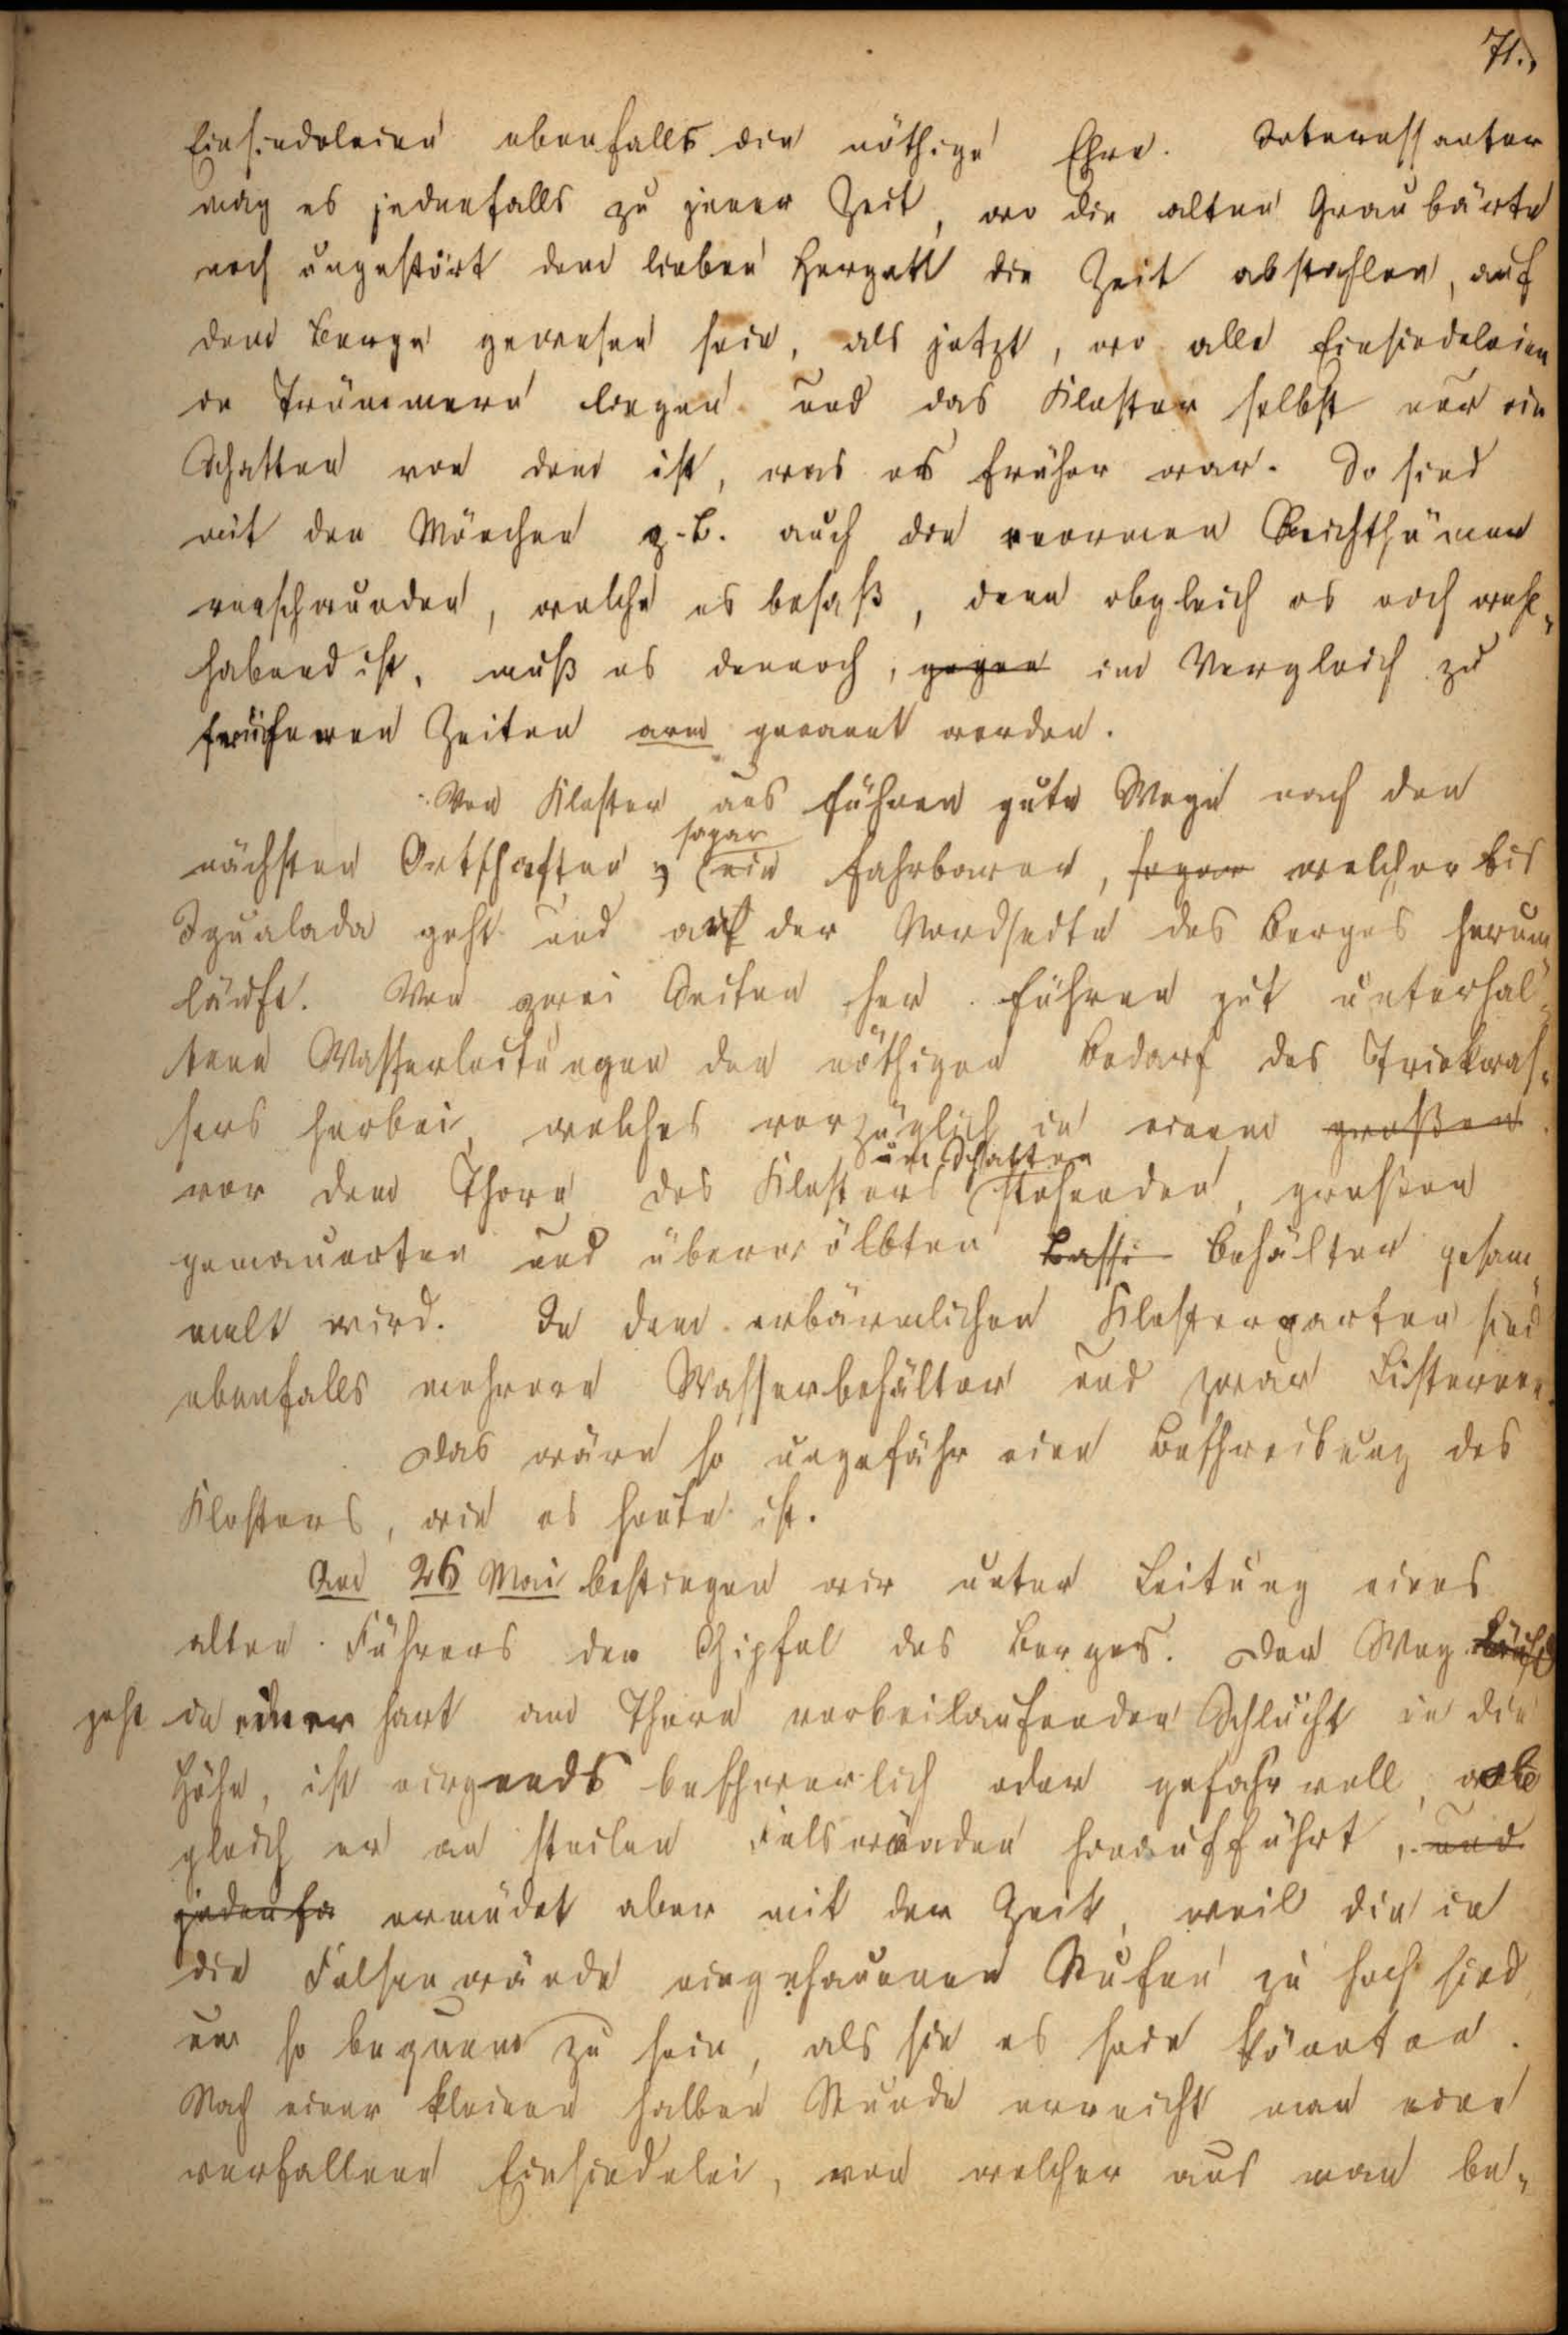 71.,
Einsiedeleien ebenfalls die nöthige Ehre. Interessanter
mag es jedenfalls zu jener Zeit, wo die alten Graubärte
noch ungestört dem lieben Hergott die Zeit abstahlen, auf
dem Berge gewesen sein, als jetzt, wo alle Einsiedeleien
in Trümmern liegen und das Kloster selbst nur ein
Schatten von dem ist, was es früher war. So sind
mit den Mönchen z.B. auch die enormen Reichthümer
verschwunden, welche es besaß, denn obgleich es noch wohl„
habend ist, muß es dennoch, gegen im Vergleich zu
früheren Zeiten arm genannt werden.
Vom Kloster aus führen gute Wege nach den
sogar
nächsten Ortschaften, ein fahrbarer, sogar welcher bis
Igualada geht und auf der Nordseite des Berges herum„
läuft. Von zwei Seiten her führen gut unterhal„
tene Wasserleitungen den nöthigen Bedarf des Trinkwas„
sers herbei, welches vorzüglich in einem großen
im Schatten
vor dem Thore des Klosters stehenden, großen
gemauerten und überwölbten Bassi Behälter gesam„
melt wird. In dem erbärmlichen Klostergarten sind
ebenfalls mehrere Wasserbehälter und zwar Cisternen.
Das wäre so ungefähr eine Beschreibung des
Klosters, wie es heute ist.
Am 26 Mai bestiegen wir unter Leitung eines
alten Führers den Gipfel des Berges. Der Weg läuft
geht in einer hart am Thore vorbeilaufenden Schlucht in die
Höhe, ist nirgends beschwerlich oder gefahrvoll, ob
gleich er an steilen Felswänden hinaufführt, und
jedenfa ermüdet aber mit der Zeit, weil die in
die Felsenwände eingehauenen Stufen zu hoch sind,
um so bequem zu sein, als sie es sein könnten.
Nach einer kleinen halben Stunde erreicht man eine
verfallene Einsiedelei, von welcher aus man be„